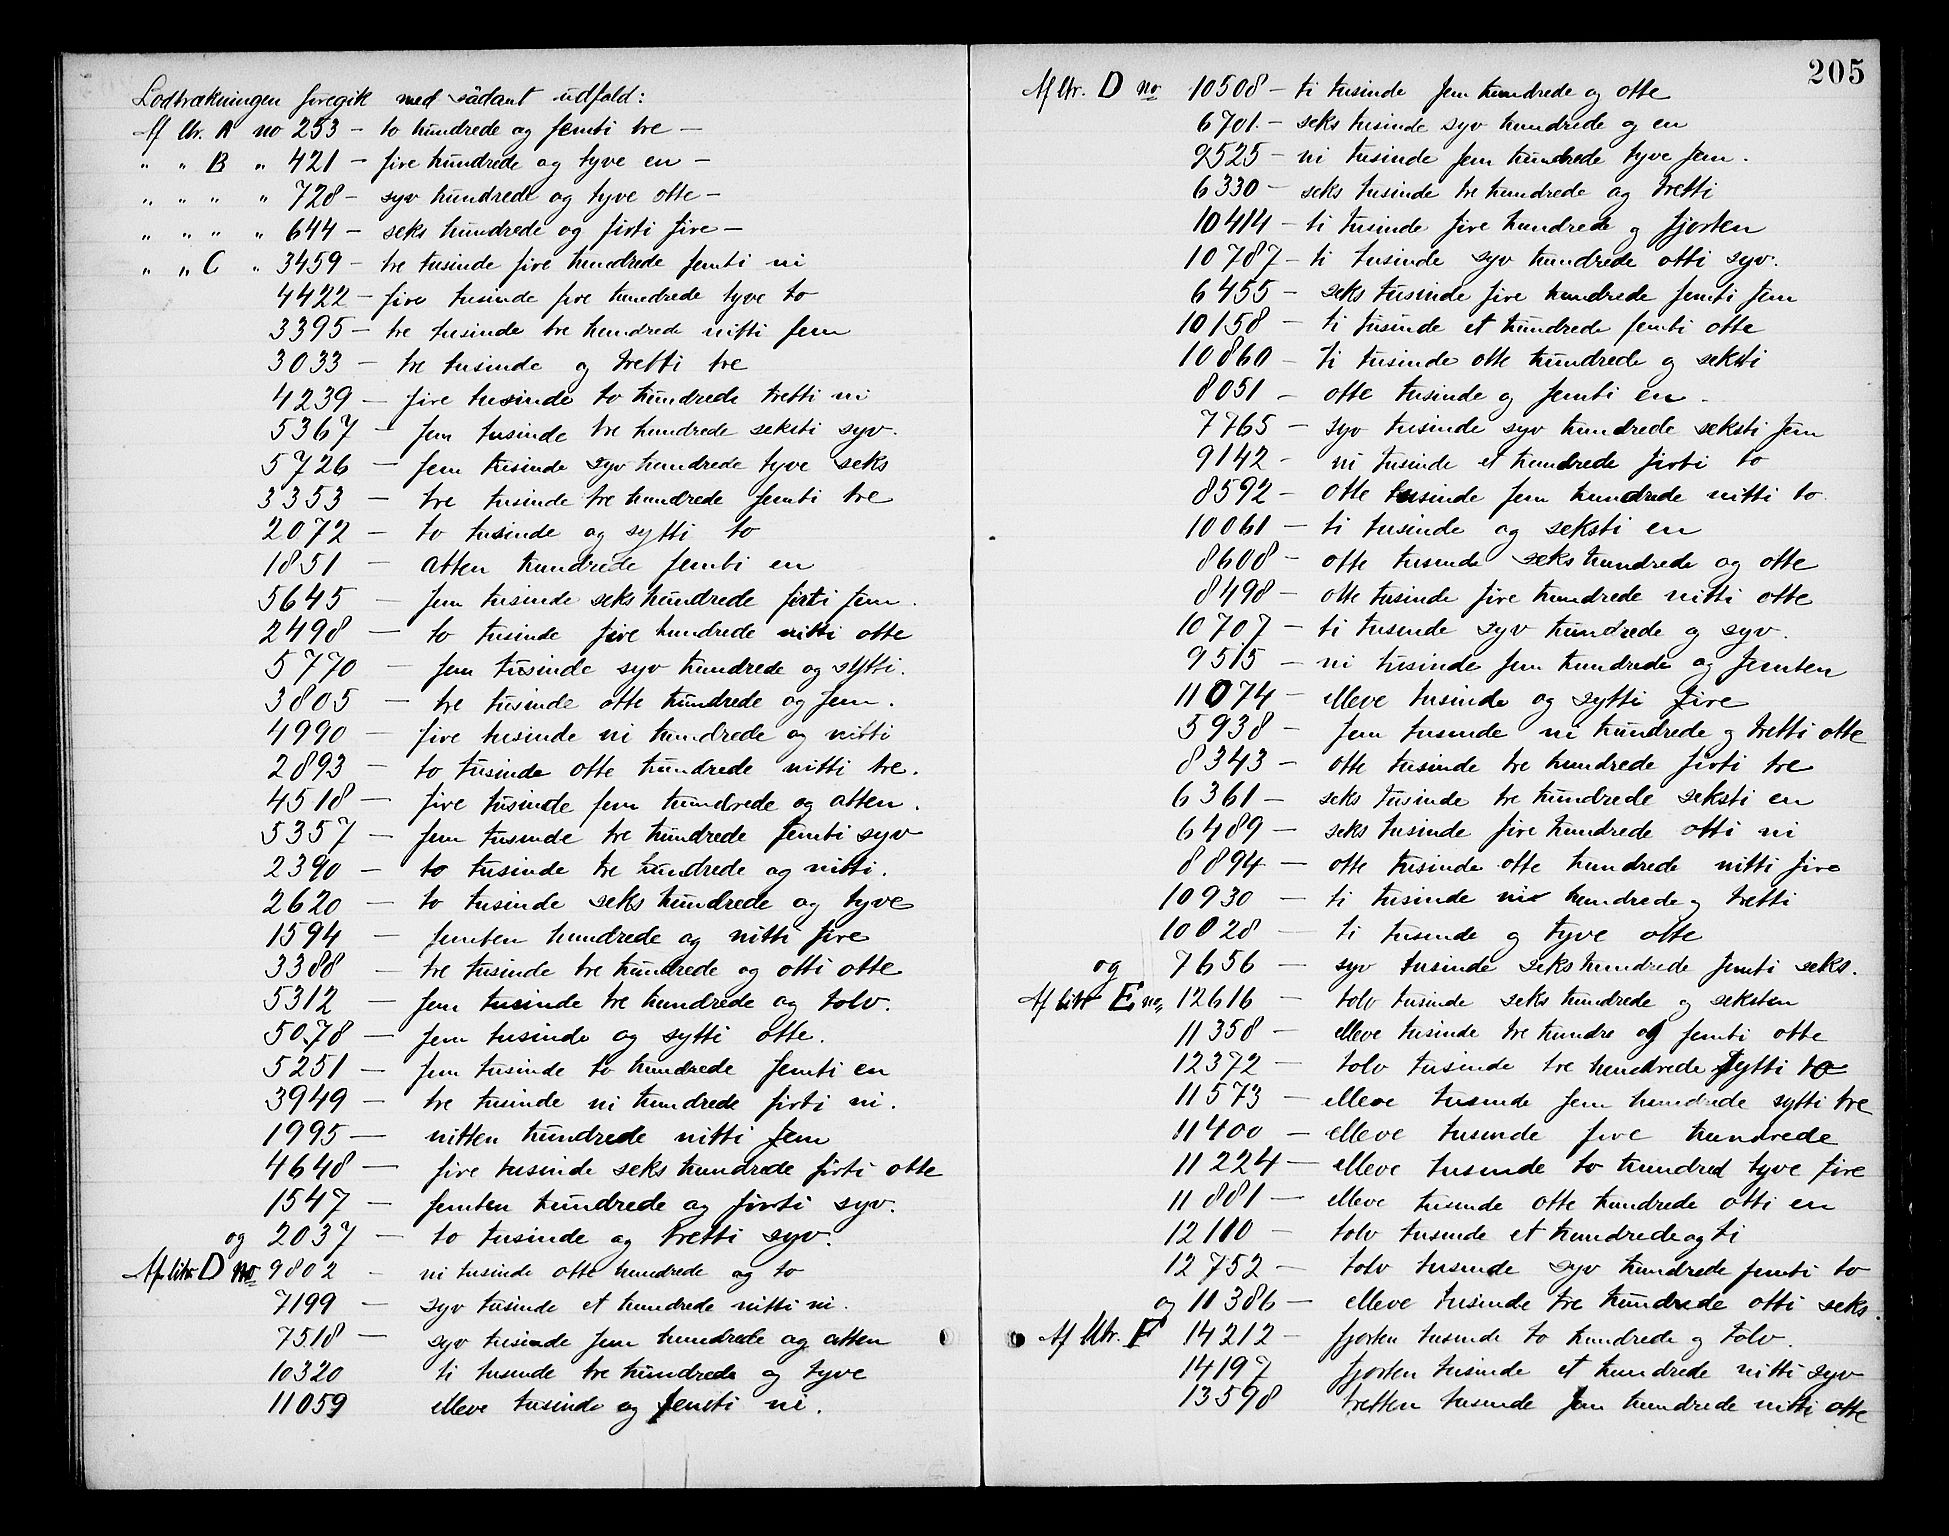 Lodtrækningen foregik med sådant udfald:
Af ltr. A no 253 – to hundrede og femti tre –
" " B " 421 – fire hundrede og tyve en –
" " " " 728 – syv hundrede og tyve otte –
" " " " 644 – seks hundrede og firti fire –
" " C " 3459 – tre tusinde fire hundrede femti ni
4422 – fire tusinde fire hundrede tyve to
3395 – tre tusinde tre hundrede nitti fem
3033 – tre tusinde og tretti tre
4239 – fire tusinde to hundrede tretti ni
5367 – fem tusinde tre hundrede seksti syv.
5726 – fem tusinde syv hundrede tyve seks
3353 – tre tusinde tre hundrede femti tre
2072 – to tusinde og sytti to
1851 – atten hundrede femti en
5645 – fem tusinde seks hundrede firti fem.
2498 – to tusinde fire hundrede nitti otte
5770 – fem tusinde syv hundrede og sytti.
3805 – tre tusinde otte hundrede og fem.
4990 – fire tusinde ni hundrede og nitti
2893 – to tusinde otte hundrede nitti tre.
4518 – fire tusinde fem hundrede og atten.
5357 – fem tusinde tre hundrede femti syv
2390 – to tusinde tre hundrede og nitti.
2620 – to tusinde seks hundrede og tyve
1594 – femten hundrede og nitti fire
3388 – tre tusinde tre hundrede og otti otte
5312 – fem tusinde tre hundrede og tolv.
5078 – fem tusinde og sytti otte.
5251 – fem tusinde to hundrede femti en
3949 – tre tusinde ni hundrede firti ni.
1995 – nitten hundrede nitti fem
4648 – fire tusinde seks hundrede firti otte
1547 – femten hundrede og firti syv.
og 2037 – to tusinde og tretti syv.
Af litr D no 9802 – ni tusinde otte hundrede og to
7199 – syv tusinde et hundrede nitti ni.
7518 – syv tusinde fem hundrede og atten
10320 ti tusinde tre hundrede og tyve
11059 elleve tusinde og femti ni.
205
Af ltr. D no 10508 – ti tusinde fem hundrede og otte
6701 – seks tusinde syv hundrede og en
9525 – ni tusinde fem hundrede tyve fem.
6330 – seks tusinde tre hundrede og tretti
10414 – ti tusinde fire hundrede og fjorten
10787 – ti tusinde syv hundrede otti syv.
6455 – seks tusinde fire hundrede femti fem
10158 – ti tusinde et hundrede femti otte
10860 – ti tusinde otte hundrede og seksti
8051 – otte tusinde og femti en –
7765 – syv tusinde syv hundrede seksti fem
9142 – ni tusinde et hundrede firti to
8592 – otte tusinde fem hundrede nitti to
10061 – ti tusinde og seksti en
8608 – otte tusinde seks hundrede og otte
8498 – otte tusinde fire hundrede nitti otte
10707 – ti tusinde syv hundrede og syv.
9515 – ni tusinde fem hundrede og femten
11074 – elleve tusinde og sytti fire
5938 – fem tusinde ni hundrede og tretti otte
8343 – otte tusinde tre hundrede firti tre
6361 – seks tusinde tre hundrede seksti en
6489 – seks tusinde fire hundrede otti ni
8894 – otte tusinde otte hundrede nitti fire
10930 – ti tusinde ni hundrede og tretti
10028 – ti tusinde og tyve otte
og 7656 – syv tusinde seks hundrede femti seks.
Af litr E no. 12616 – tolv tusinde seks hundrede og seksten
11358 – elleve tusinde tre hundre og femti otte
12372 – tolv tusinde tre hundrede sytti to
11573 – elleve tusinde fem hundrede sytti tre
11400 – elleve tusinde fire hundrede
11224 – elleve tusinde to hundred tyve fire
11881 – elleve tusinde otte hundrede otti en
12110 – tolv tusinde et hundrede og ti
12752 – tolv tusinde syv hundrede femti to
og 11386 – elleve tusinde tre hundrede otti seks.
Af ltr. F 14212 – fjorten tusinde to hundrede og tolv.
14197 fjorten tusinde et hundrede nitti syv
13598 tretten tusinde fem hundrede nitti otte